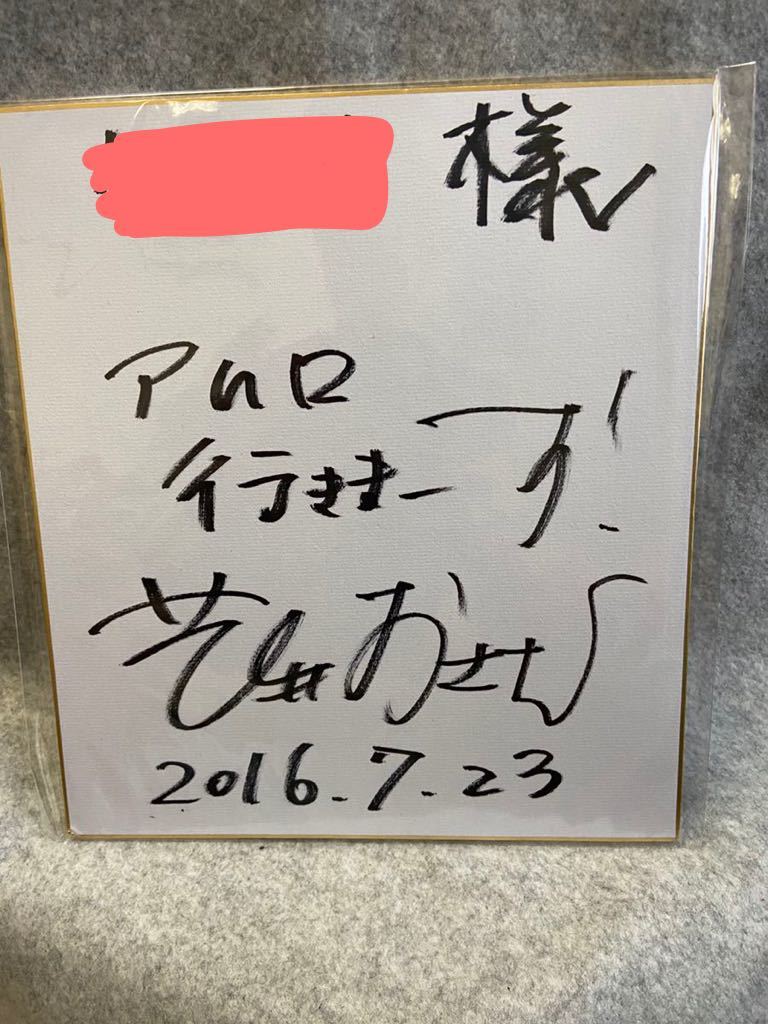 様
アムロ
行きまーす!
若井おさむ
2016.7.23